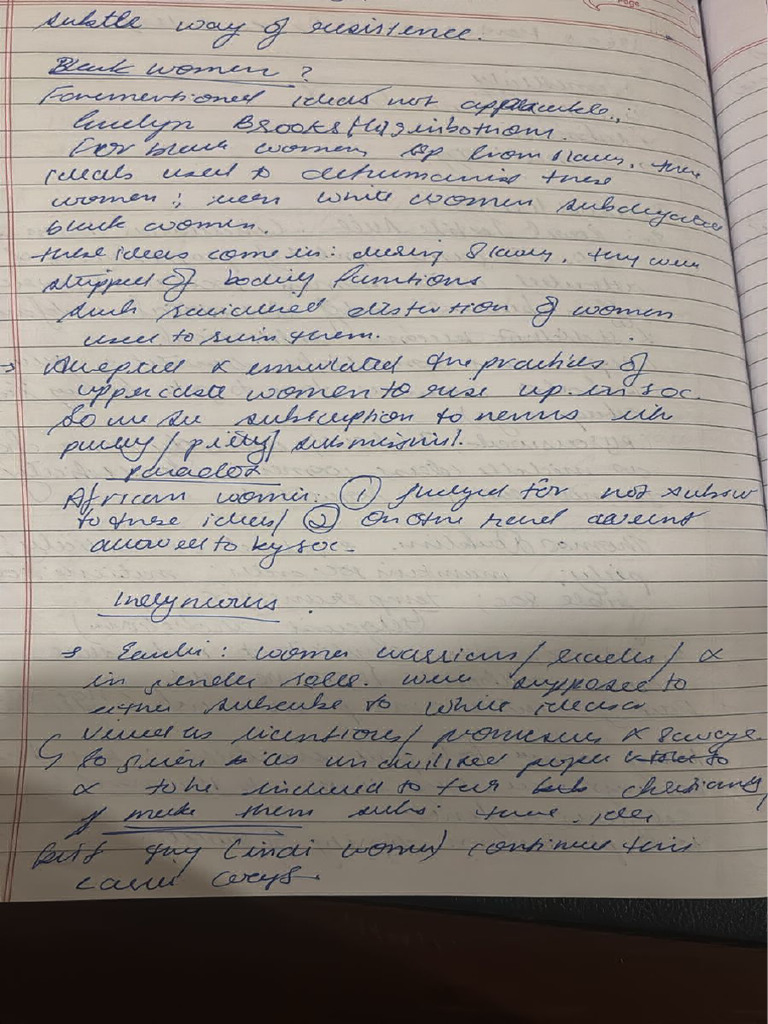 subtle way of resistence.
Black women ?
Forementioned ideas not applicable,
Evelyn Brooks Higginbotham.
For black women, from slavery, these
ideals used to dehumanise these
women ; even white women
black women.
these ideas come in : during slavery, they were
stripped of bodily functions
such racialized distortion of women
used to ruin them.
Accepted & emulated the practices of
uppercaste women to rise up in soc.
So we see subscription to norms like
purity / piety / submission.
Paradox
African women. ① Judged for not
to these ideas / ② on other hand
allowed to by soc.
Indigneous
→ Earlier : women warriors / leaders / &
in gender roles. were supposed to
either subscribe to white ideas or
viewed as licentious / & savage
So given as uncivilized people to
& to be to christianity
& make them subs. these idea
But they (indi women) continue their
ways.